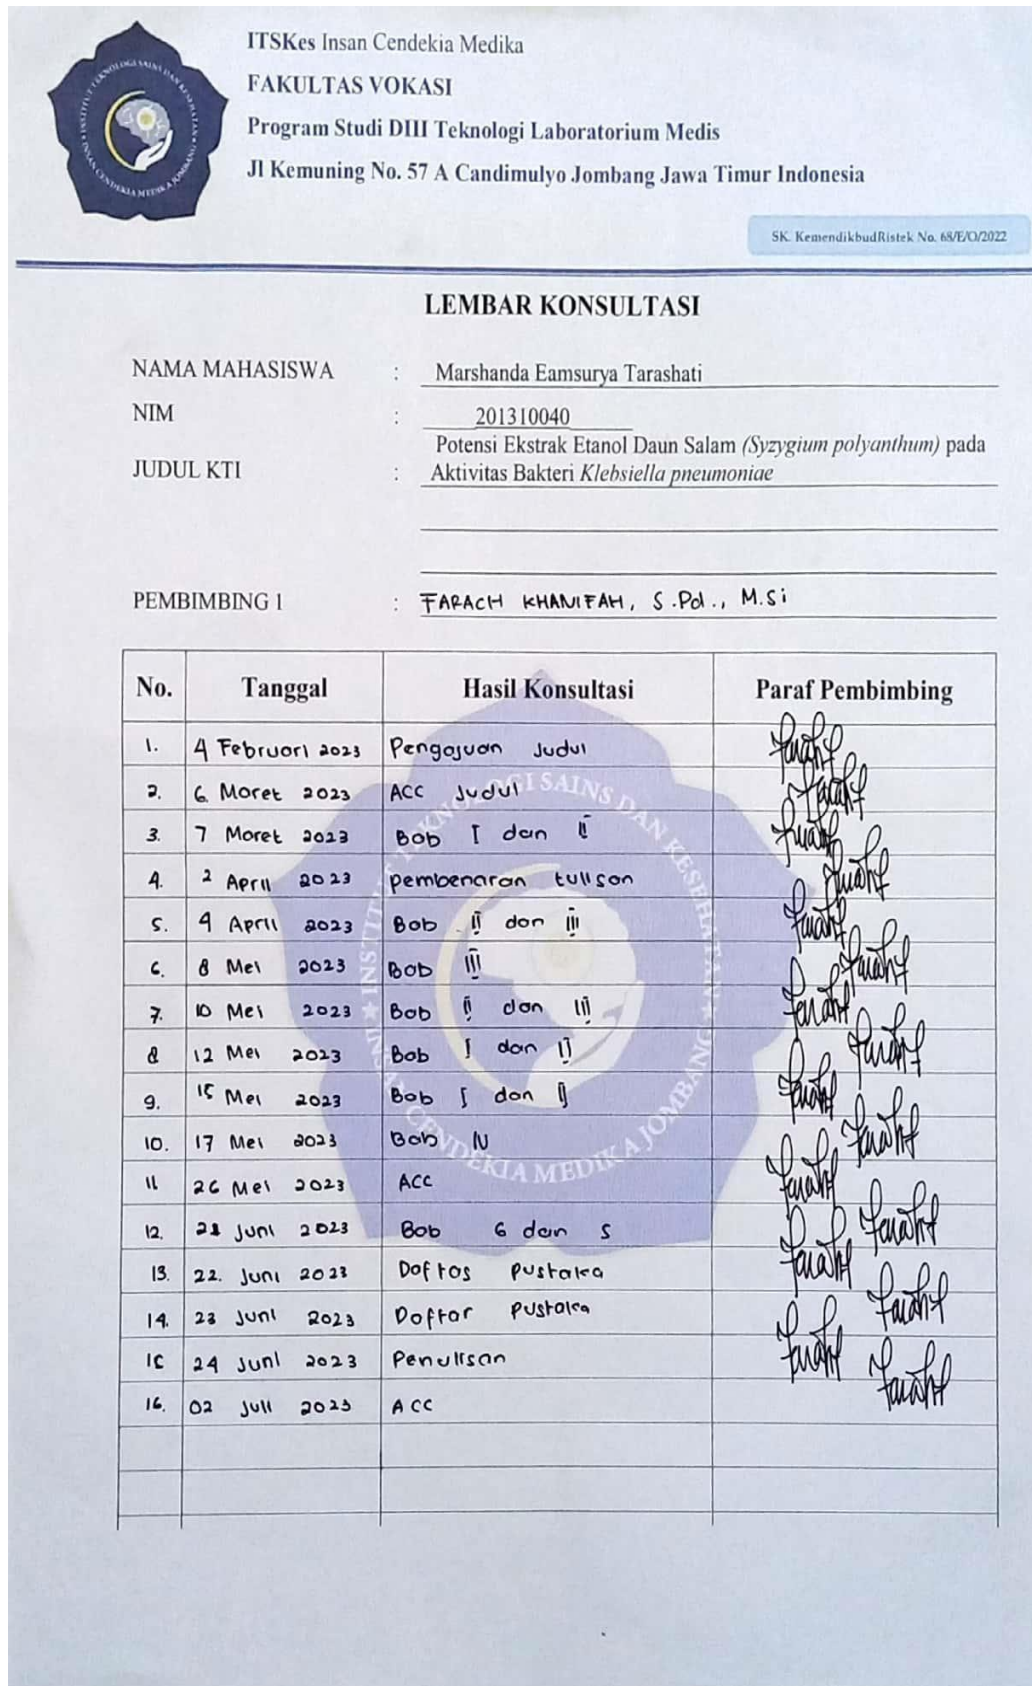 INSTITUT TEKNOLOGI SAINS DAN KESEHATAN
INSAN CENDEKIA MEDIKA JOMBANG
ITSKes Insan Cendekia Medika
FAKULTAS VOKASI
Program Studi DIII Teknologi Laboratorium Medis
Jl Kemuning No. 57 A Candimulyo Jombang Jawa Timur Indonesia
SK. KemendikbudRistek No. 68/E/O/2022
LEMBAR KONSULTASI
NAMA MAHASISWA : Marshanda Eamsurya Tarashati
NIM : 201310040
Potensi Ekstrak Etanol Daun Salam (Syzygium polyanthum) pada
JUDUL KTI : Aktivitas Bakteri Klebsiella pneumoniae
PEMBIMBING 1 : FARACH KHANIFAH, S.Pd., M.Si
No. Tanggal Hasil Konsultasi Paraf Pembimbing
1. 4 Februari 2023 Pengajuan Judul
2. 6 Maret 2023 ACC Judul
3. 7 Maret 2023 Bab I dan II
4. 2 April 2023 pembenaran tulisan
5. 4 April 2023 Bab II dan III
6. 8 Mei 2023 Bab III
7. 10 Mei 2023 Bab II dan III
8 12 Mei 2023 Bab I dan II
9. 15 Mei 2023 Bab I dan II
10. 17 Mei 2023 Bab IV
11 26 Mei 2023 ACC
12. 21 Juni 2023 Bab 6 dan 5
13. 22. Juni 2023 Daftas pustaka
14. 23 Juni 2023 Daftar pustaka
15 24 Juni 2023 Penulisan
16. 02 Juli 2023 ACC
INSTITUT TEKNOLOGI SAINS DAN KESEHATAN
INSAN CENDEKIA MEDIKA JOMBANG